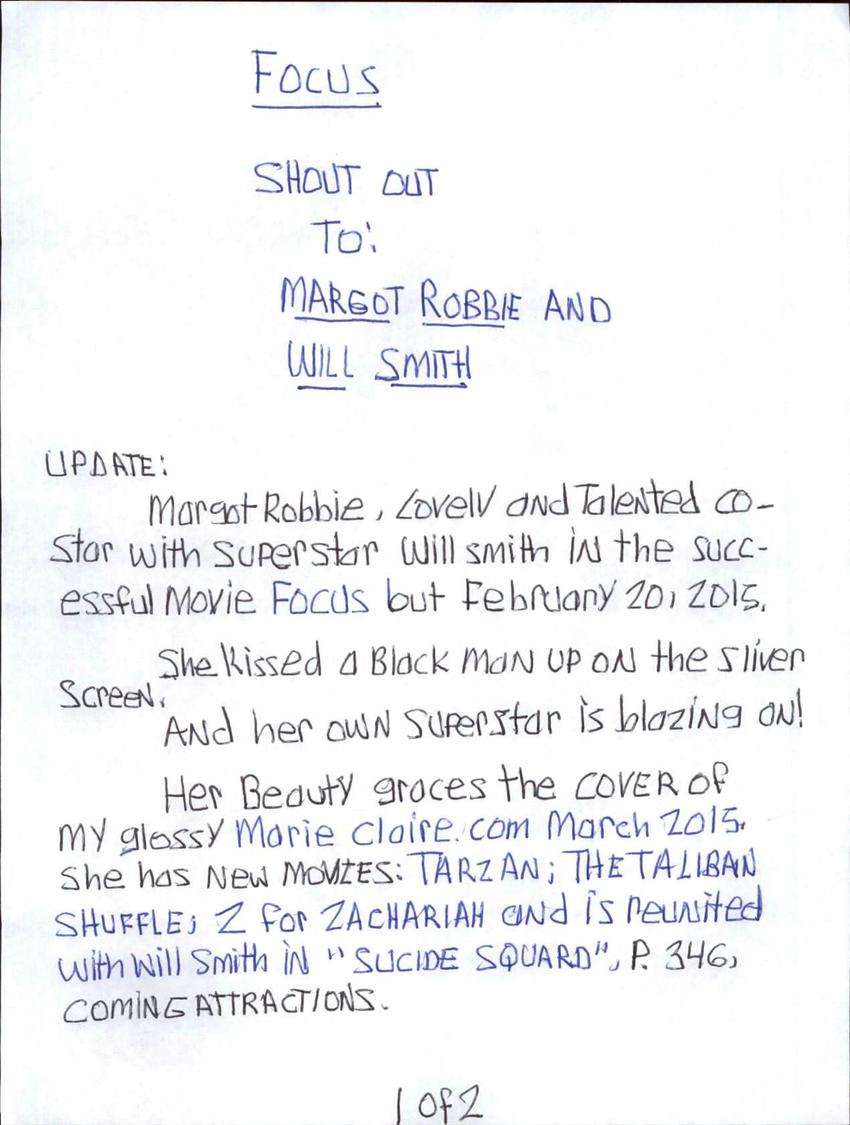 FOCUS
SHOUT OUT
TO:
MARGOT ROBBIE AND
WILL SMITH
UPDATE:
Margot Robbie, Lovely and Talented co-
star with superstar Will smith in the succ-
essful Movie FOCUS but February 20, 2015.
She kissed a Black man up on the sliver
screen.
And her own superstar is blazing on!
Her Beauty graces the COVER of
my glossy Marie Claire.com March 2015.
She has New MOVIES: TARZAN; THE TALIBAN
SHUFFLE; Z for ZACHARIAH and is reunited
with Will Smith in "SUCIDE SQUARD", P. 346,
COMING ATTRACTIONS.
1 of 2